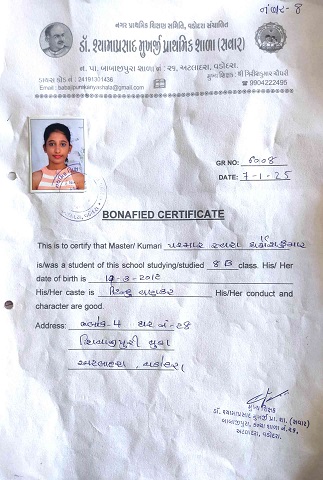 નંબર-8
નગર પ્રાથમિક શિક્ષણ સમિતિ, વડોદરા સંચાલિત
ડૉ. શ્યામાપ્રસાદ મુખર્જી પ્રાથમિક શાળા (સવાર)
ન. પ્રા. બાબાજીપુરા શાળા નં : ૨૧, અટલાદરા, વડોદરા.
ડાયસ કોડ નં : 24191301436
મુખ્ય શિક્ષક : શ્રી ગિરીશકુમાર ચૌધરી
Email : babajipurakanyashala@gmail.com
9904222495
GR NO: 6008
DATE: 7-1-25
BONAFIED CERTIFICATE
This is to certify that Master/ Kumari પરમાર
is/was a student of this school studying/studied 8 B class. His/ Her
date of birth is 19-3-2012
His/Her caste is હિન્દુ વણકર His/Her conduct and
character are good.
Address: બ્લોક-4 ઘર નં-28
શિવાજીપુરી
અટલાદરા, વડોદરા
મુખ્ય શિક્ષક
ડૉ. શ્યામાપ્રસાદ મુખર્જી પ્રા. શા. (સવાર)
બાબાજીપુરા, કન્યા શાળા નં.૨૧,
અટલાદરા, વડોદરા.